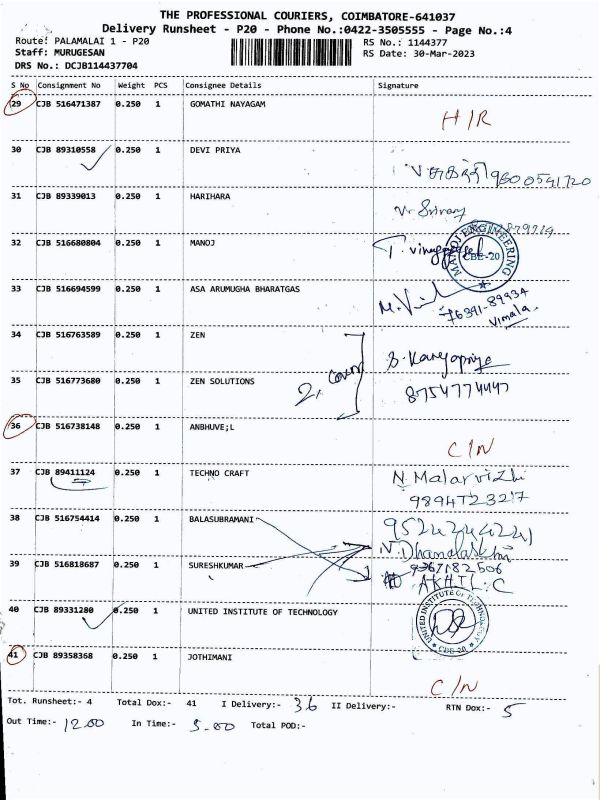 THE PROFESSIONAL COURIERS, COIMBATORE-641037
Delivery Runsheet - P20 - Phone No.:0422-3505555 - Page No.:4
Route: PALAMALAI 1 - P20
RS No.: 1144377
Staff: MURUGESAN
RS Date: 30-Mar-2023
DRS No.: DCJB114437704
S No Consignment No Weight PCS Consignee Details Signature
29 CJB 516471387 0.250 1 GOMATHI NAYAGAM
H/R
30 CJB 89310558 0.250 1 DEVI PRIYA
9600541720
31 CJB 89339013 0.250 1 HARIHARA
V. Sriram
32 CJB 516680804 0.250 1 MANOJ
MANOJ ENGINEERING
CBE-20
33 CJB 516694599 0.250 1 ASA ARUMUGHA BHARATGAS
76391-89934
Vimala.
34 CJB 516763589 0.250 1 ZEN
2, cover
35 CJB 516773680 0.250 1 ZEN SOLUTIONS
8754774447
36 CJB 516738148 0.250 1 ANBHUVE;L
C/N
37 CJB 89411124 0.250 1 TECHNO CRAFT
N. Malarvizhi
9894723217
38 CJB 516754414 0.250 1 BALASUBRAMANI
39 CJB 516818687 0.250 1 SURESHKUMAR
AKHIL.C
40 CJB 89331280 0.250 1 UNITED INSTITUTE OF TECHNOLOGY
UNITED INSTITUTE OF TECHNOLOGY
CBE-20
41 CJB 89358368 0.250 1 JOTHIMANI
C/N
Tot. Runsheet:- 4 Total Dox:- 41 I Delivery:- 36 II Delivery:- RTN Dox:- 5
Out Time:- 12.00 In Time:- 5.00 Total POD:-